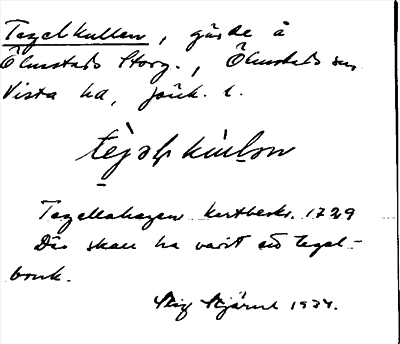 Tegelkullen, gärde å
Ölmstads Storg., Ölmstads sn
Vista hd, Jönk. l.
Tegellahagen kartbeskr. 1729
Där skall ha varit ett tegel-
bruk.
Stig Stjärne 1934.